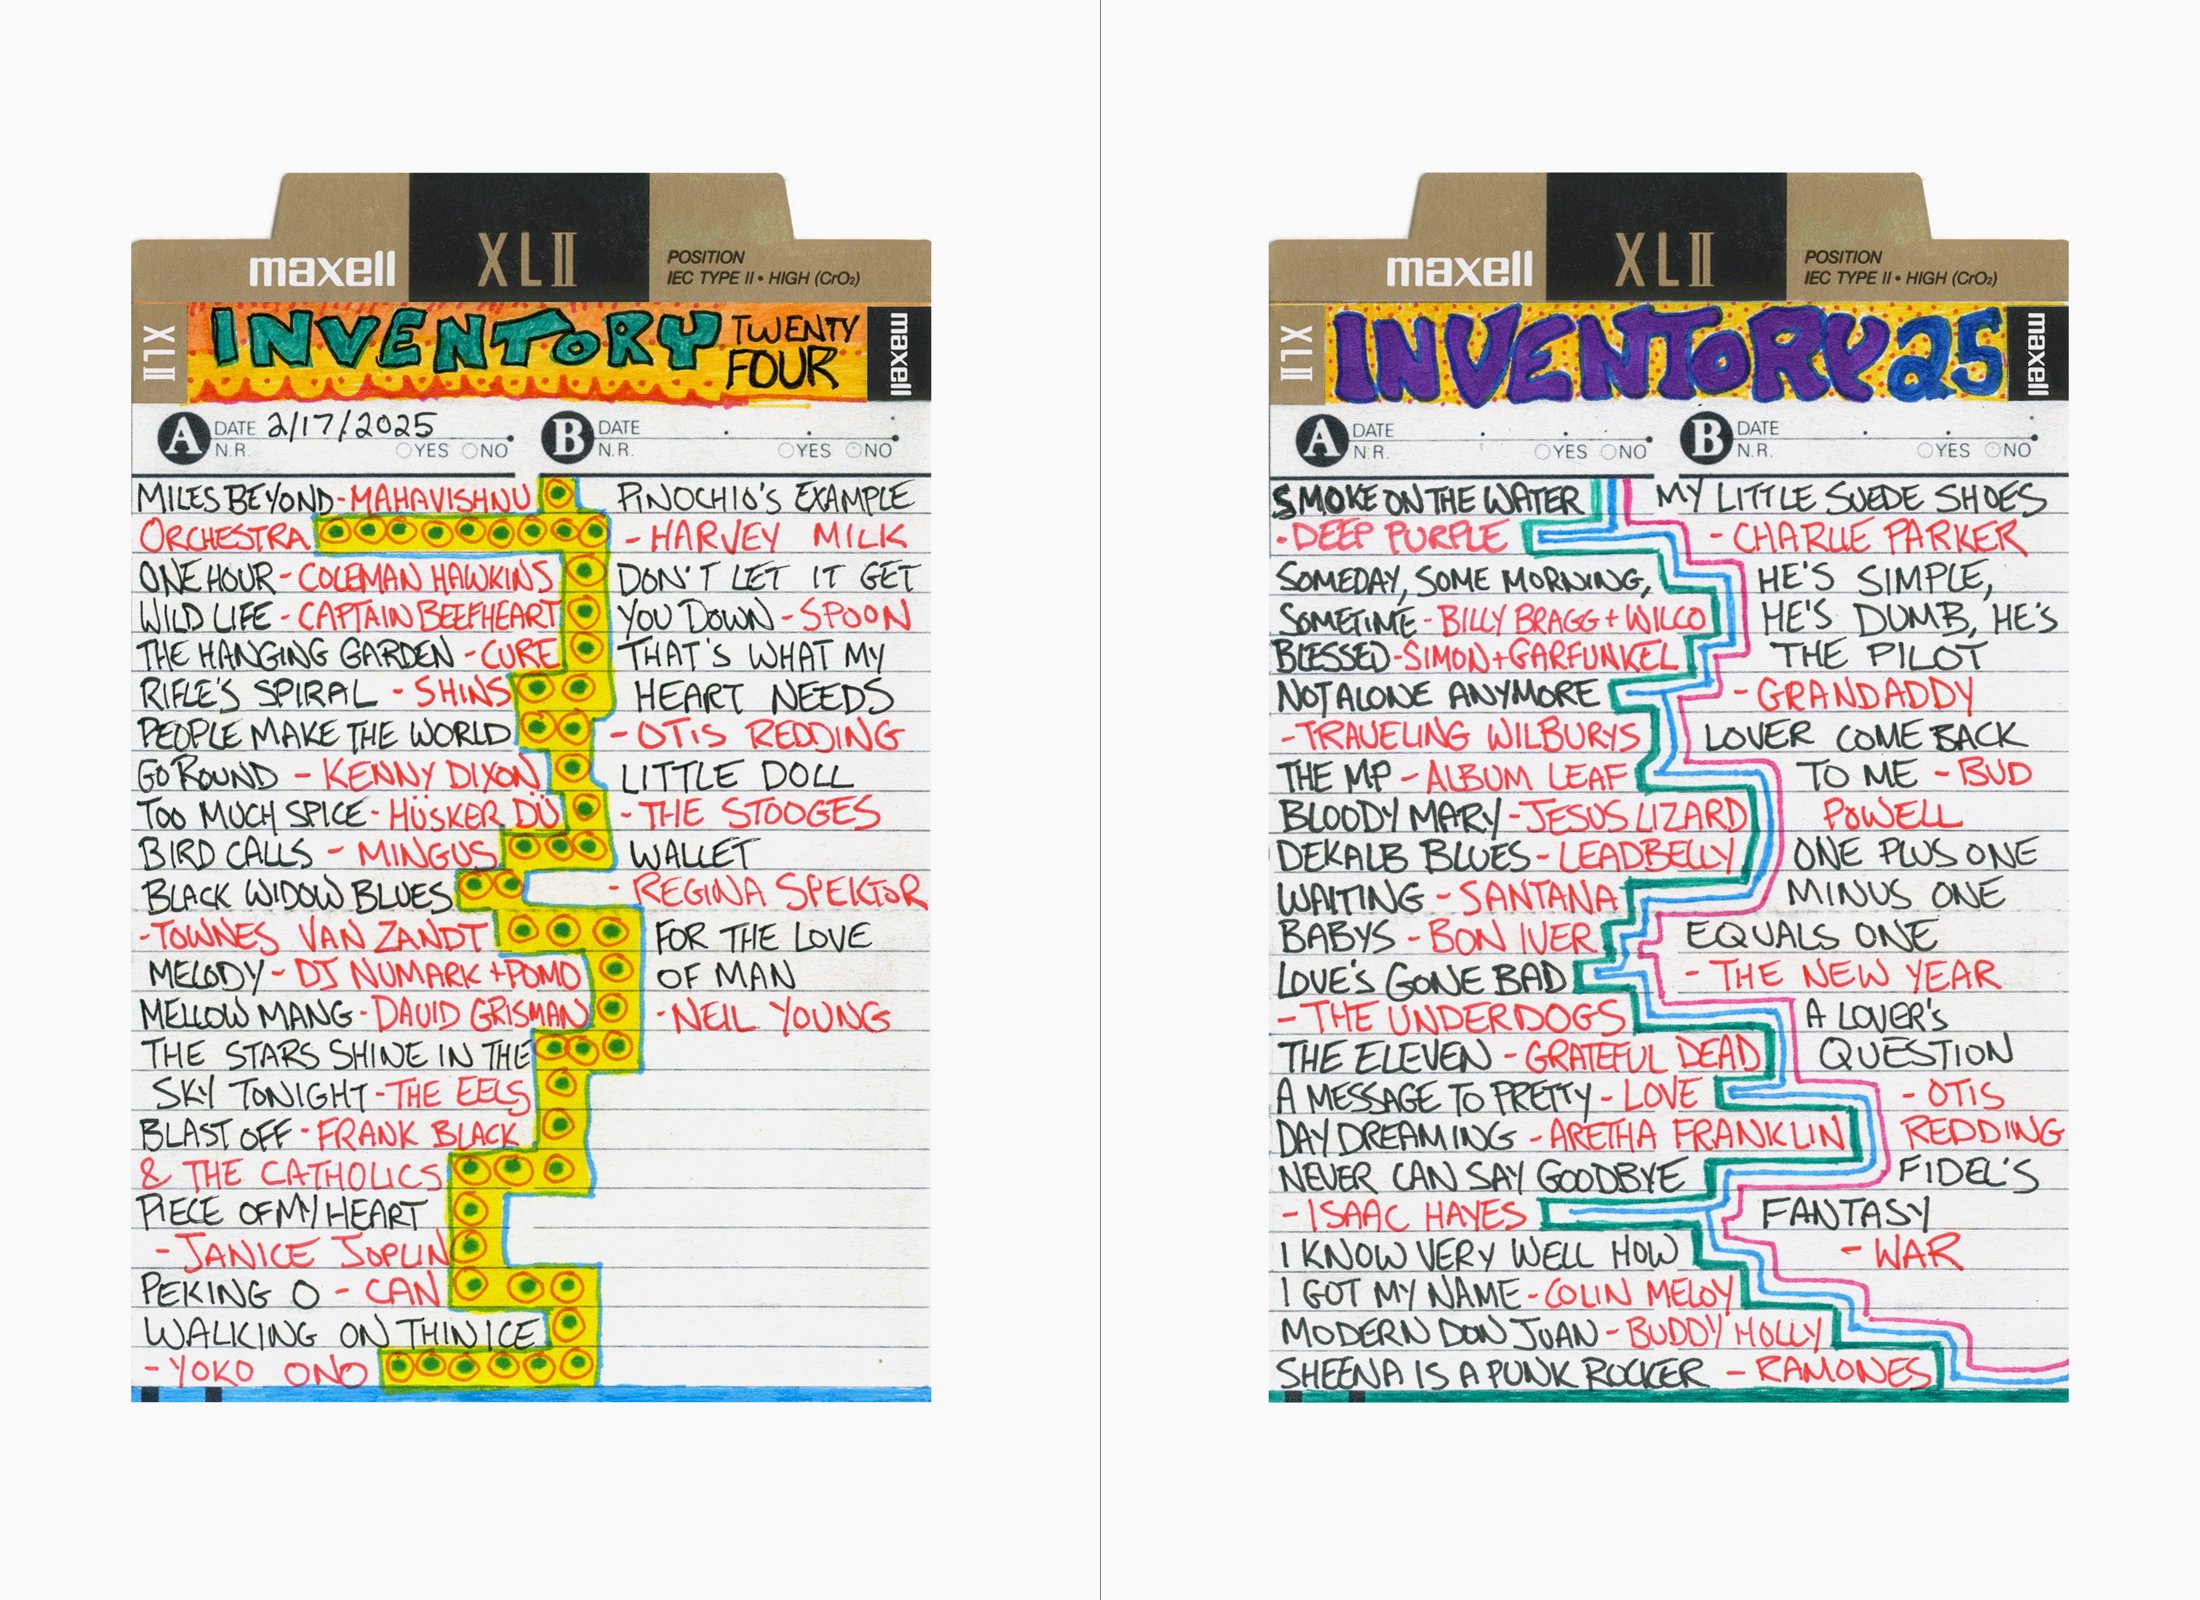 maxell
XLII
POSITION
IEC TYPE II • HIGH (CrO₂)
XLII
INVENTORY TWENTY FOUR
maxell
A DATE 2/17/2025
N.R. YES NO
B DATE
N.R. YES NO
MILES BEYOND - MAHAVISHNU
ORCHESTRA
ONE HOUR - COLEMAN HAWKINS
WILD LIFE - CAPTAIN BEEFHEART
THE HANGING GARDEN - CURE
RIFLE'S SPIRAL - SHINS
PEOPLE MAKE THE WORLD
GO ROUND - KENNY DIXON
TOO MUCH SPICE - HÜSKER DÜ
BIRD CALLS - MINGUS
BLACK WIDOW BLUES
- TOWNES VAN ZANDT
MELODY - DJ NUMARK + POMO
MELLOW MANG - DAVID GRISMAN
THE STARS SHINE IN THE
SKY TONIGHT - THE EELS
BLAST OFF - FRANK BLACK
& THE CATHOLICS
PIECE OF MY HEART
- JANICE JOPLIN
PEKING O - CAN
WALKING ON THIN ICE
- YOKO ONO
PINOCHIO'S EXAMPLE
- HARVEY MILK
DON'T LET IT GET
YOU DOWN - SPOON
THAT'S WHAT MY
HEART NEEDS
- OTIS REDDING
LITTLE DOLL
- THE STOOGES
WALLET
- REGINA SPEKTOR
FOR THE LOVE
OF MAN
- NEIL YOUNG
maxell
XLII
POSITION
IEC TYPE II • HIGH (CrO₂)
XLII
INVENTORY 25
maxell
A DATE
N.R. YES NO
B DATE
N.R. YES NO
SMOKE ON THE WATER
- DEEP PURPLE
SOMEDAY, SOME MORNING,
SOMETIME - BILLY BRAGG + WILCO
BLESSED - SIMON + GARFUNKEL
NOT ALONE ANYMORE
- TRAVELING WILBURYS
THE MP - ALBUM LEAF
BLOODY MARY - JESUS LIZARD
DEKALB BLUES - LEADBELLY
WAITING - SANTANA
BABYS - BON IVER
LOVE'S GONE BAD
- THE UNDERDOGS
THE ELEVEN - GRATEFUL DEAD
A MESSAGE TO PRETTY - LOVE
DAY DREAMING - ARETHA FRANKLIN
NEVER CAN SAY GOODBYE
- ISAAC HAYES
I KNOW VERY WELL HOW
I GOT MY NAME - COLIN MELOY
MODERN DON JUAN - BUDDY HOLLY
SHEENA IS A PUNK ROCKER - RAMONES
MY LITTLE SUEDE SHOES
- CHARLIE PARKER
HE'S SIMPLE,
HE'S DUMB, HE'S
THE PILOT
- GRANDADDY
LOVER COME BACK
TO ME - BUD
POWELL
ONE PLUS ONE
MINUS ONE
EQUALS ONE
- THE NEW YEAR
A LOVER'S
QUESTION
- OTIS
REDDING
FIDEL'S
FANTASY
- WAR